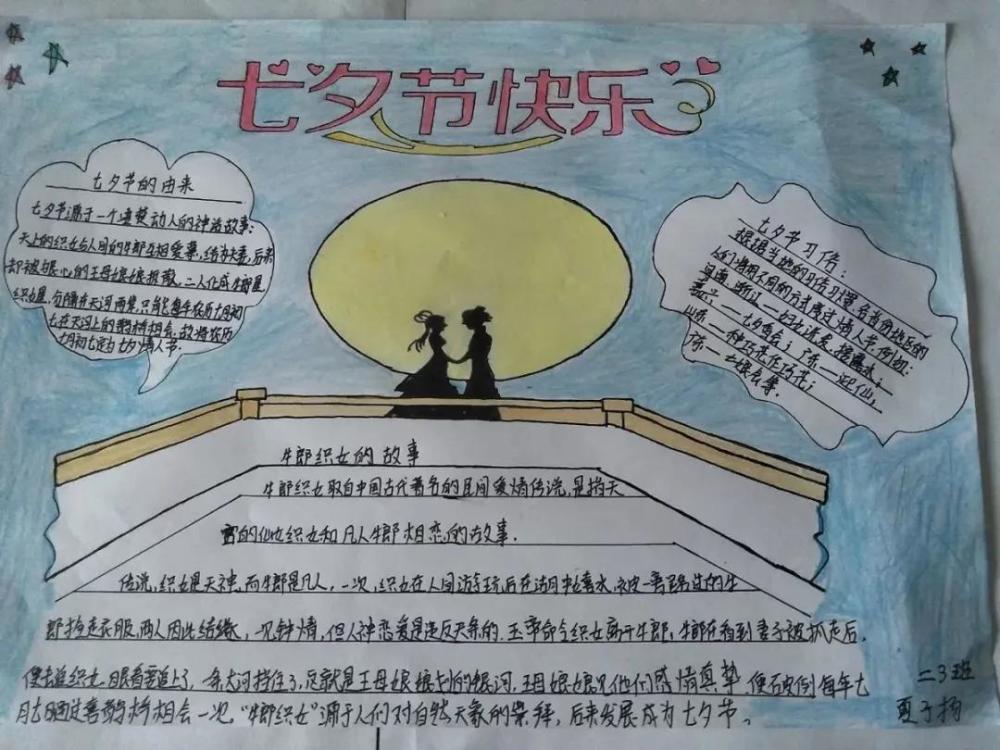 七夕节快乐
七夕节的由来
七夕节源于一个凄美动人的神话故事:
天上的织女与人间的牛郎互相爱慕,结为夫妻,后来
却被狠心的王母娘娘拆散,二人化成牛郎星
织女星,分隔在天河两岸,只能每年农历七月初
七在天河上的鹊桥相会,故将农历
七月初七定为七夕情人节。
七夕节习俗:
根据当地的习俗习惯各省份地区的
人们将用不同的方式度过情人节,例如:
浙江——妇女洗发,接露水;
嘉兴——七夕香会;广东——迎仙;
山东——种巧花作巧花;
——七娘会等.
牛郎织女的故事
牛郎织女取自中国古代著名的民间爱情传说,是指天
宫的仙女织女和凡人牛郎相恋的故事.
传说,织女是天神,而牛郎是凡人,一次,织女在人间游玩后在湖中嬉水,被一害路过的牛
郎拾走衣服,两人因此结缘,一见钟情,但人神恋爱是违反天条的.玉帝命令织女离开牛郎,牛郎在看到妻子被抓走后.
便去追织女,眼看要追上了,一条大河挡住了,原就是王母娘娘划的银河,王母娘娘见他们感情真挚,便破例每年七
月七日通过喜鹊桥相会一次."牛郎织女"源于人们对自然天象的崇拜,后来发展成为七夕节。
二3班
夏子杨